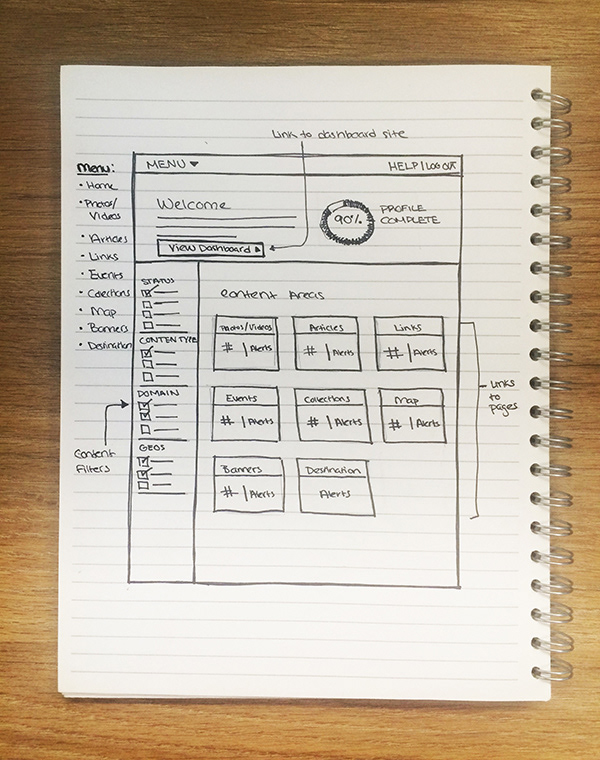 Link to dashboard site
Menu:
• Home
• Photos/
Videos
• Articles
• Links
• Events
• Collections
• Map
• Banners
• Destination
Content
Filters
MENU ▼
HELP | LOG OUT
Welcome
View Dashboard ▶
90%
PROFILE
COMPLETE
STATUS
CONTENT TYPE
DOMAIN
GEOS
Content Areas
Photos/Videos
# | Alerts
Articles
# | Alerts
Links
# | Alerts
Events
# | Alerts
Collections
# | Alerts
Map
# | Alerts
Banners
# | Alerts
Destination
Alerts
Links
to
pages